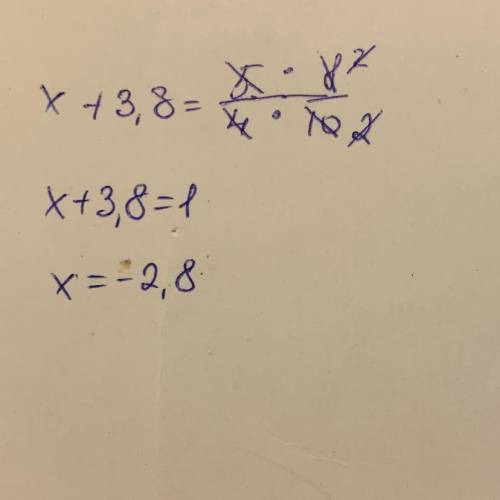 x + 3,8 = (5 · 8 2) / (4 · 10 2)
x + 3,8 = 1
x = -2,8